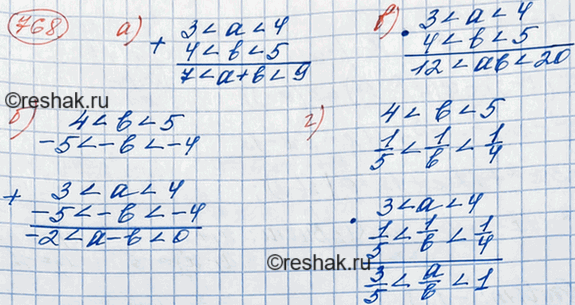 768 а) 3 < a < 4
+ 4 < в < 5
7 < a+в < 9
в) 3 < a < 4
· 4 < в < 5
12 < aв < 20
©reshak.ru
б) 4 < в < 5
-5 < -в < -4
+ 3 < a < 4
-5 < -в < -4
-2 < a-в < 0
г) 4 < в < 5
1/5 < 1/в < 1/4
· 3 < a < 4
1/5 < 1/в < 1/4
3/5 < a/в < 1
©reshak.ru